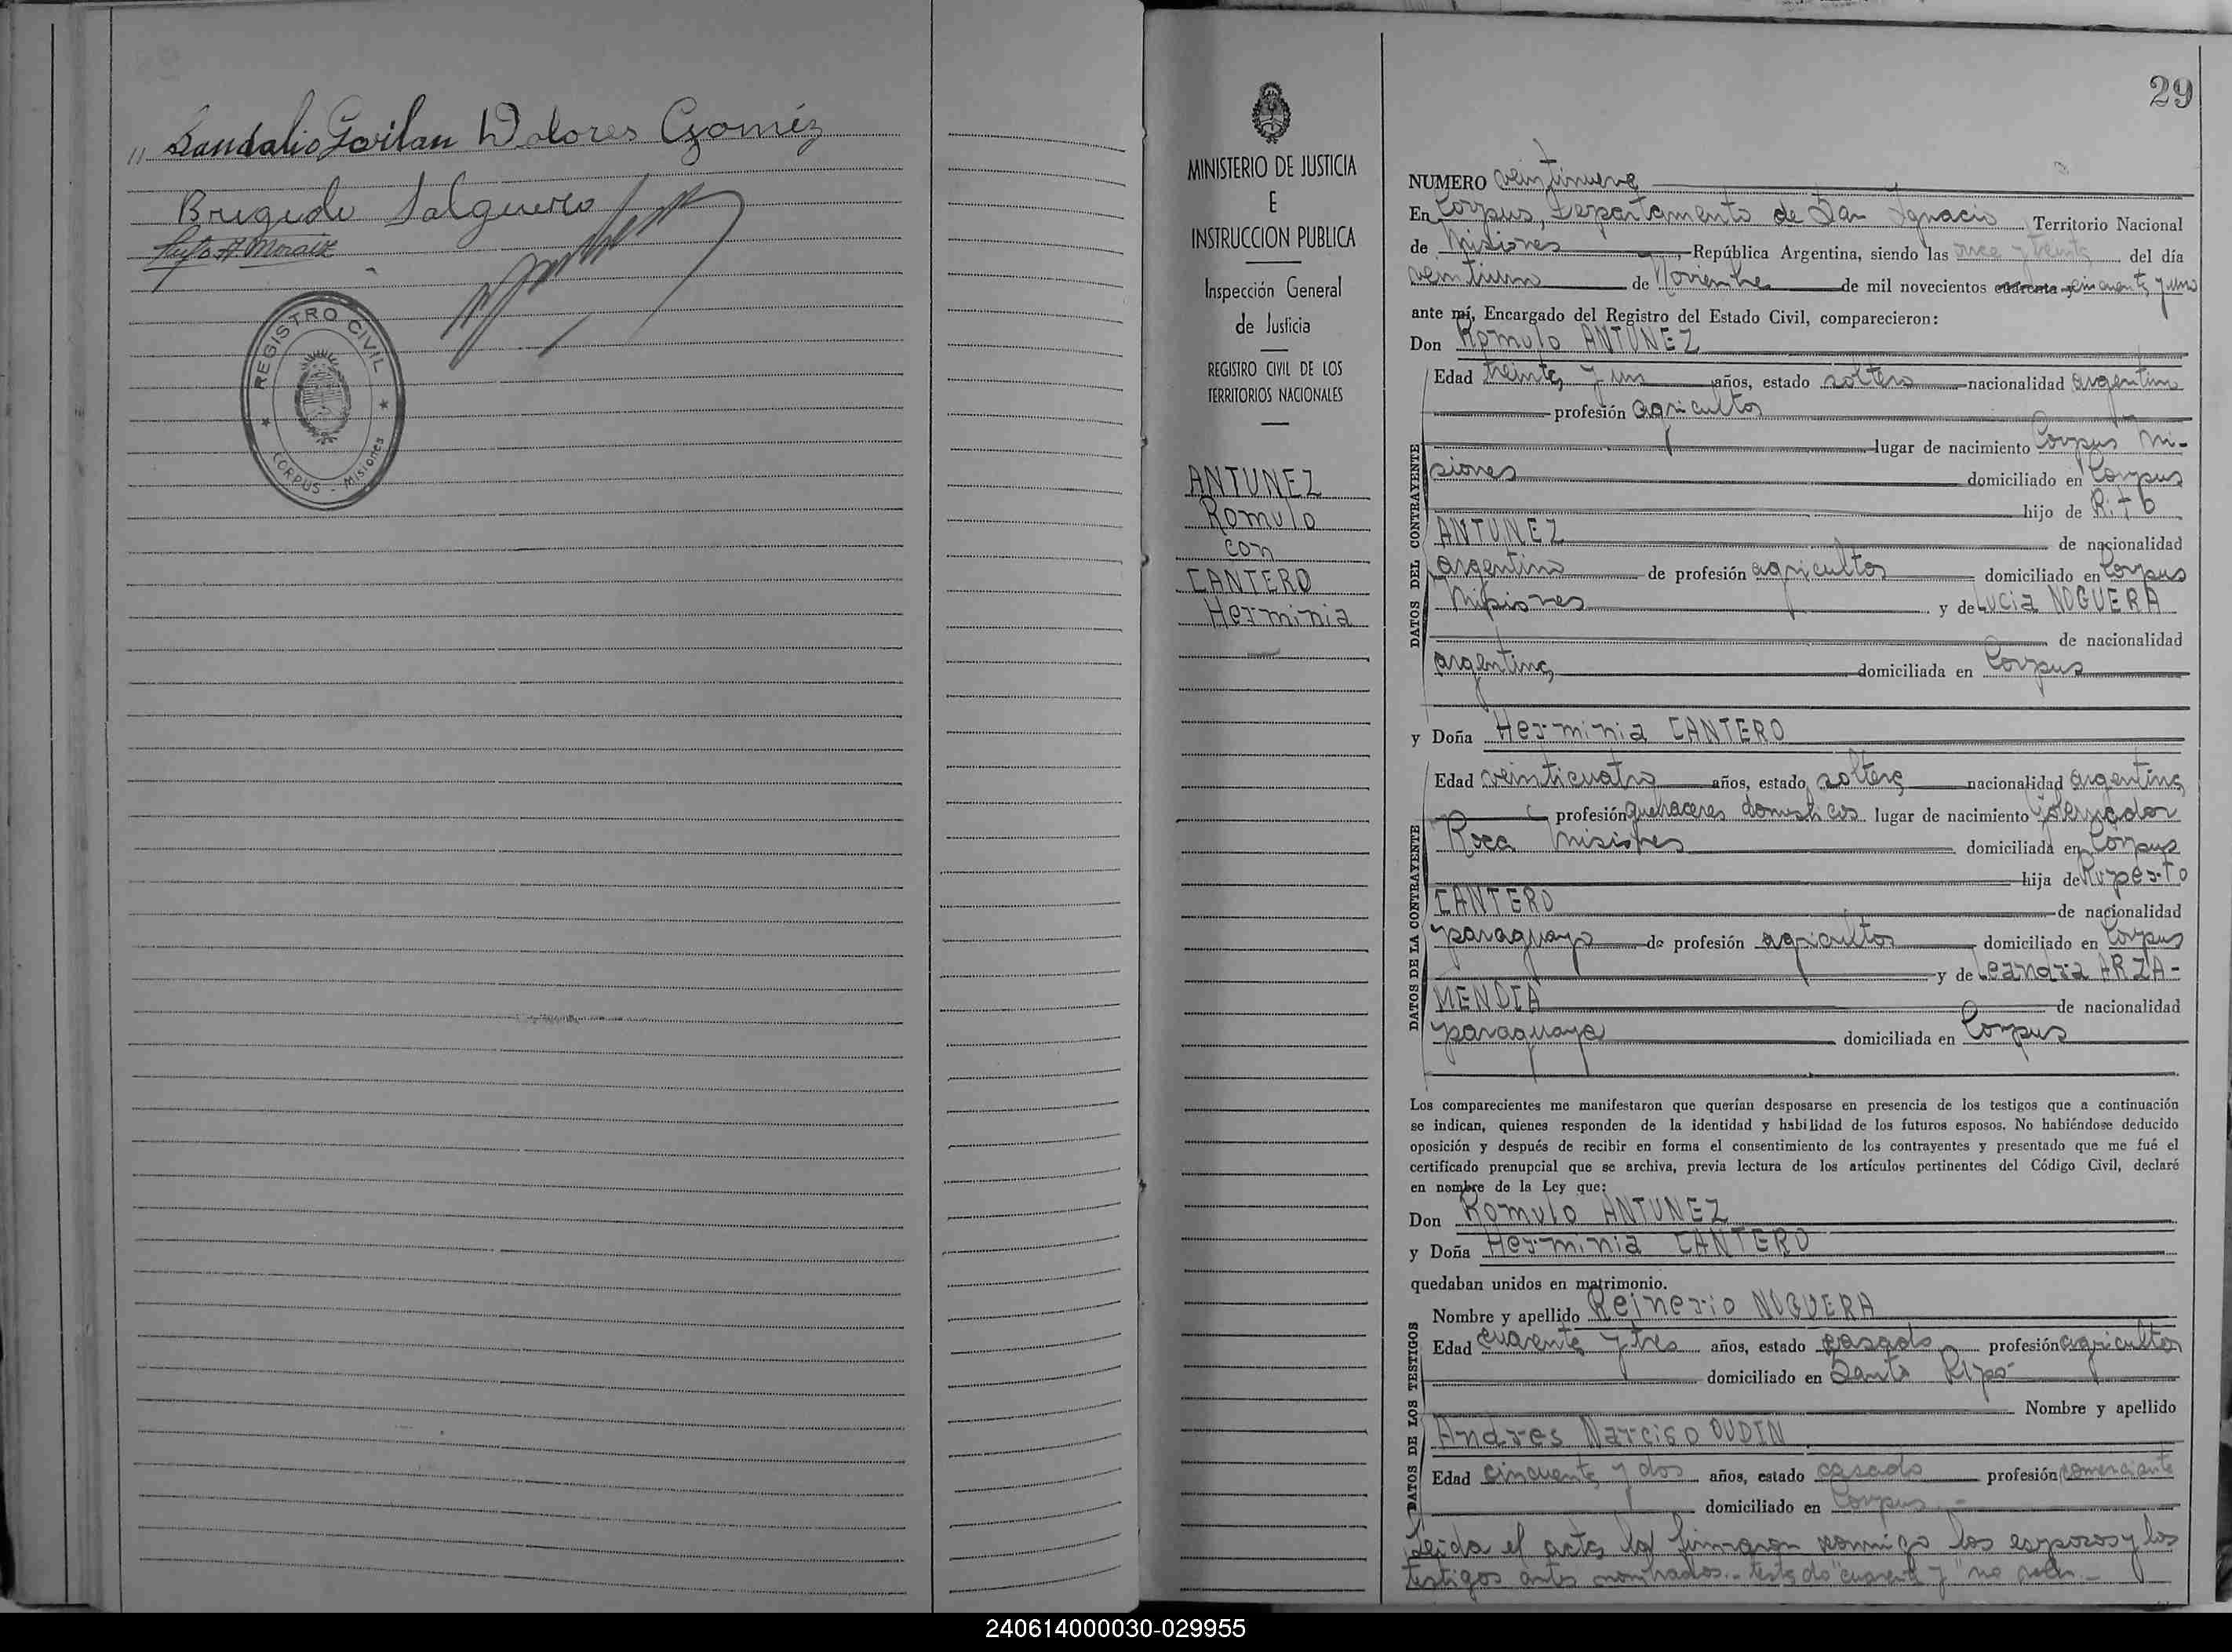 " Sandalio Gavilan Dolores Goméz
Brigido Salguero
REGISTRO CIVIL
CORPUS - Misiones
29
MINISTERIO DE JUSTICIA
E
INSTRUCCION PUBLICA
Inspección General
de Justicia
REGISTRO CIVIL DE LOS
TERRITORIOS NACIONALES
ANTUNEZ
Romulo
con
CANTERO
Herminia
NUMERO veintinueve
En Corpus, Departamento de San Ignacio Territorio Nacional
de Misiones, República Argentina, siendo las once y treinta del día
veintiuno de Noviembre de mil novecientos cuarenta y cincuenta y uno
ante mí, Encargado del Registro del Estado Civil, comparecieron:
Don Romulo ANTUNEZ
DATOS DEL CONTRAYENTE
Edad treinta y un años, estado soltero nacionalidad argentina
profesión agricultor
lugar de nacimiento Corpus Mi-
siones domiciliado en Corpus
hijo de Rito
ANTUNEZ de nacionalidad
argentino de profesión agricultor domiciliado en Corpus
Misiones y de Lucia NOGUERA
de nacionalidad
argentina domiciliada en Corpus
y Doña Herminia CANTERO
DATOS DE LA CONTRAYENTE
Edad veinticuatro años, estado soltera nacionalidad argentina
profesión quehaceres domesticos lugar de nacimiento Gobernador
Roca Misiones domiciliada en Corpus
hija de Ruperto
CANTERO de nacionalidad
paraguayo de profesión agricultor domiciliado en Corpus
y de Leandra ARZA-
MENDIA de nacionalidad
paraguaya domiciliada en Corpus
Los comparecientes me manifestaron que querían desposarse en presencia de los testigos que a continuación
se indican, quienes responden de la identidad y habilidad de los futuros esposos. No habiéndose deducido
oposición y después de recibir en forma el consentimiento de los contrayentes y presentado que me fué el
certificado prenupcial que se archiva, previa lectura de los artículos pertinentes del Código Civil, declaré
en nombre de la Ley que:
Don Romulo ANTUNEZ
y Doña Herminia CANTERO
quedaban unidos en matrimonio.
DATOS DE LOS TESTIGOS
Nombre y apellido Reinerio NOGUERA
Edad cuarenta y tres años, estado casado profesión agricultor
domiciliado en Santo Pipó
Nombre y apellido
Andres Narciso OUDIN
Edad cincuenta y dos años, estado casado profesión comerciante
domiciliado en Corpus.-
Leida el acta la firmaron conmigo los esposos y los
testigos antes nombrados.- testado "cuarenta y" no vale.-
240614000030-029955